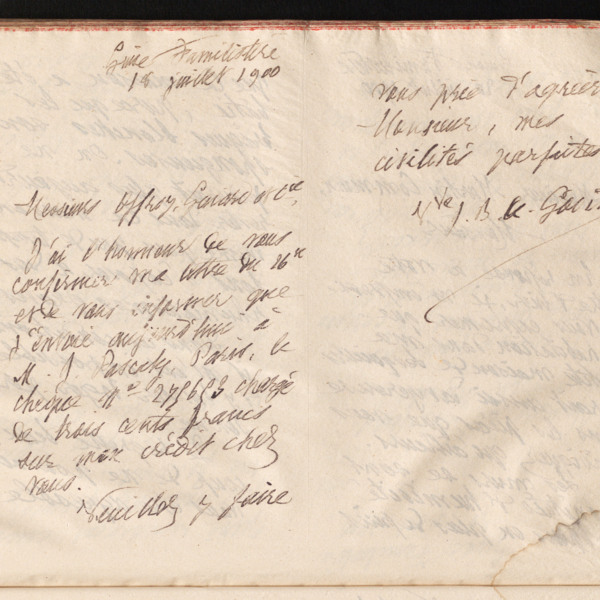 Guise Familistère
18 juillet 1900
Messieurs Offroy, Guiard et Cie,
J'ai l'honneur de vous
confirmer ma lettre du 16 ct
et de vous informer que
j'envoie aujourd'hui à
M. J. Pascaly, Paris, le
chèque No 275653 chargé
de trois cents francs
sur mon crédit chez
vous.
Veuillez y faire
vous prie d'agréer
Monsieur, mes
civilités parfaites
Vve J. B. A. Godin